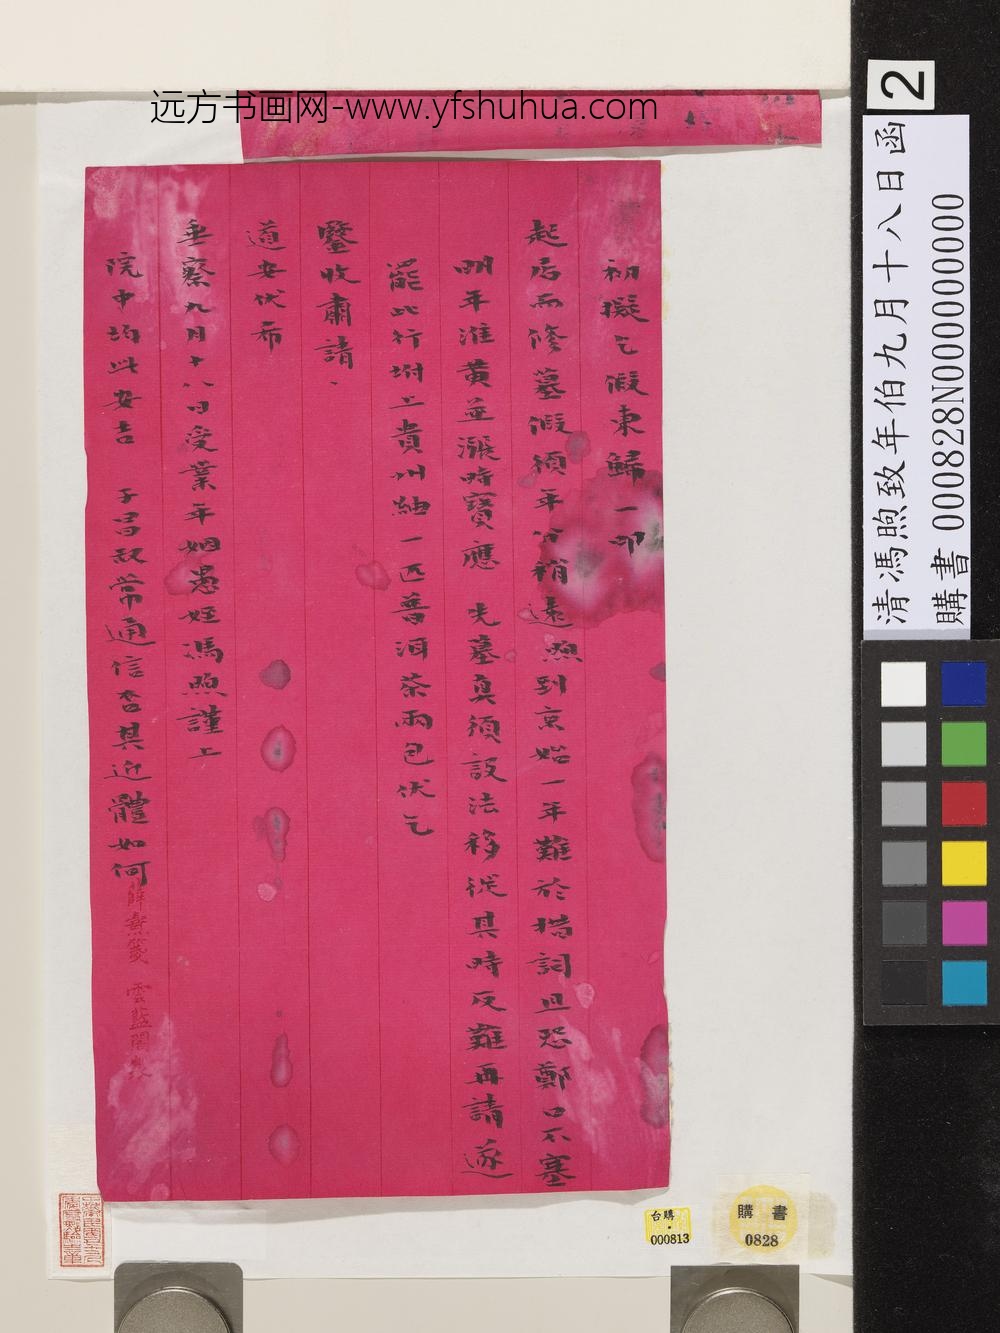 远方书画网-www.yfshuhua.com
2
清馮煦致年伯九月十八日函
購書 000828N000000000
初擬乞假東歸一卽
起居而修墓假須年分稍遠煦到京始一年難於措詞且恐鄭口不塞
明年淮黃並漲時寶應 先墓奠須設法移從其時反難再請遂
罷此行坿上貴州紬一匹普洱茶兩包伏乞
鑒收肅請
道安伏希
垂察九月十八日受業年姻愚姪馮煦謹上
院中均此安吉 子昌啟常通信否其近體如何
薛燾箋 雲藍閣製
台購
000813
購書
0828